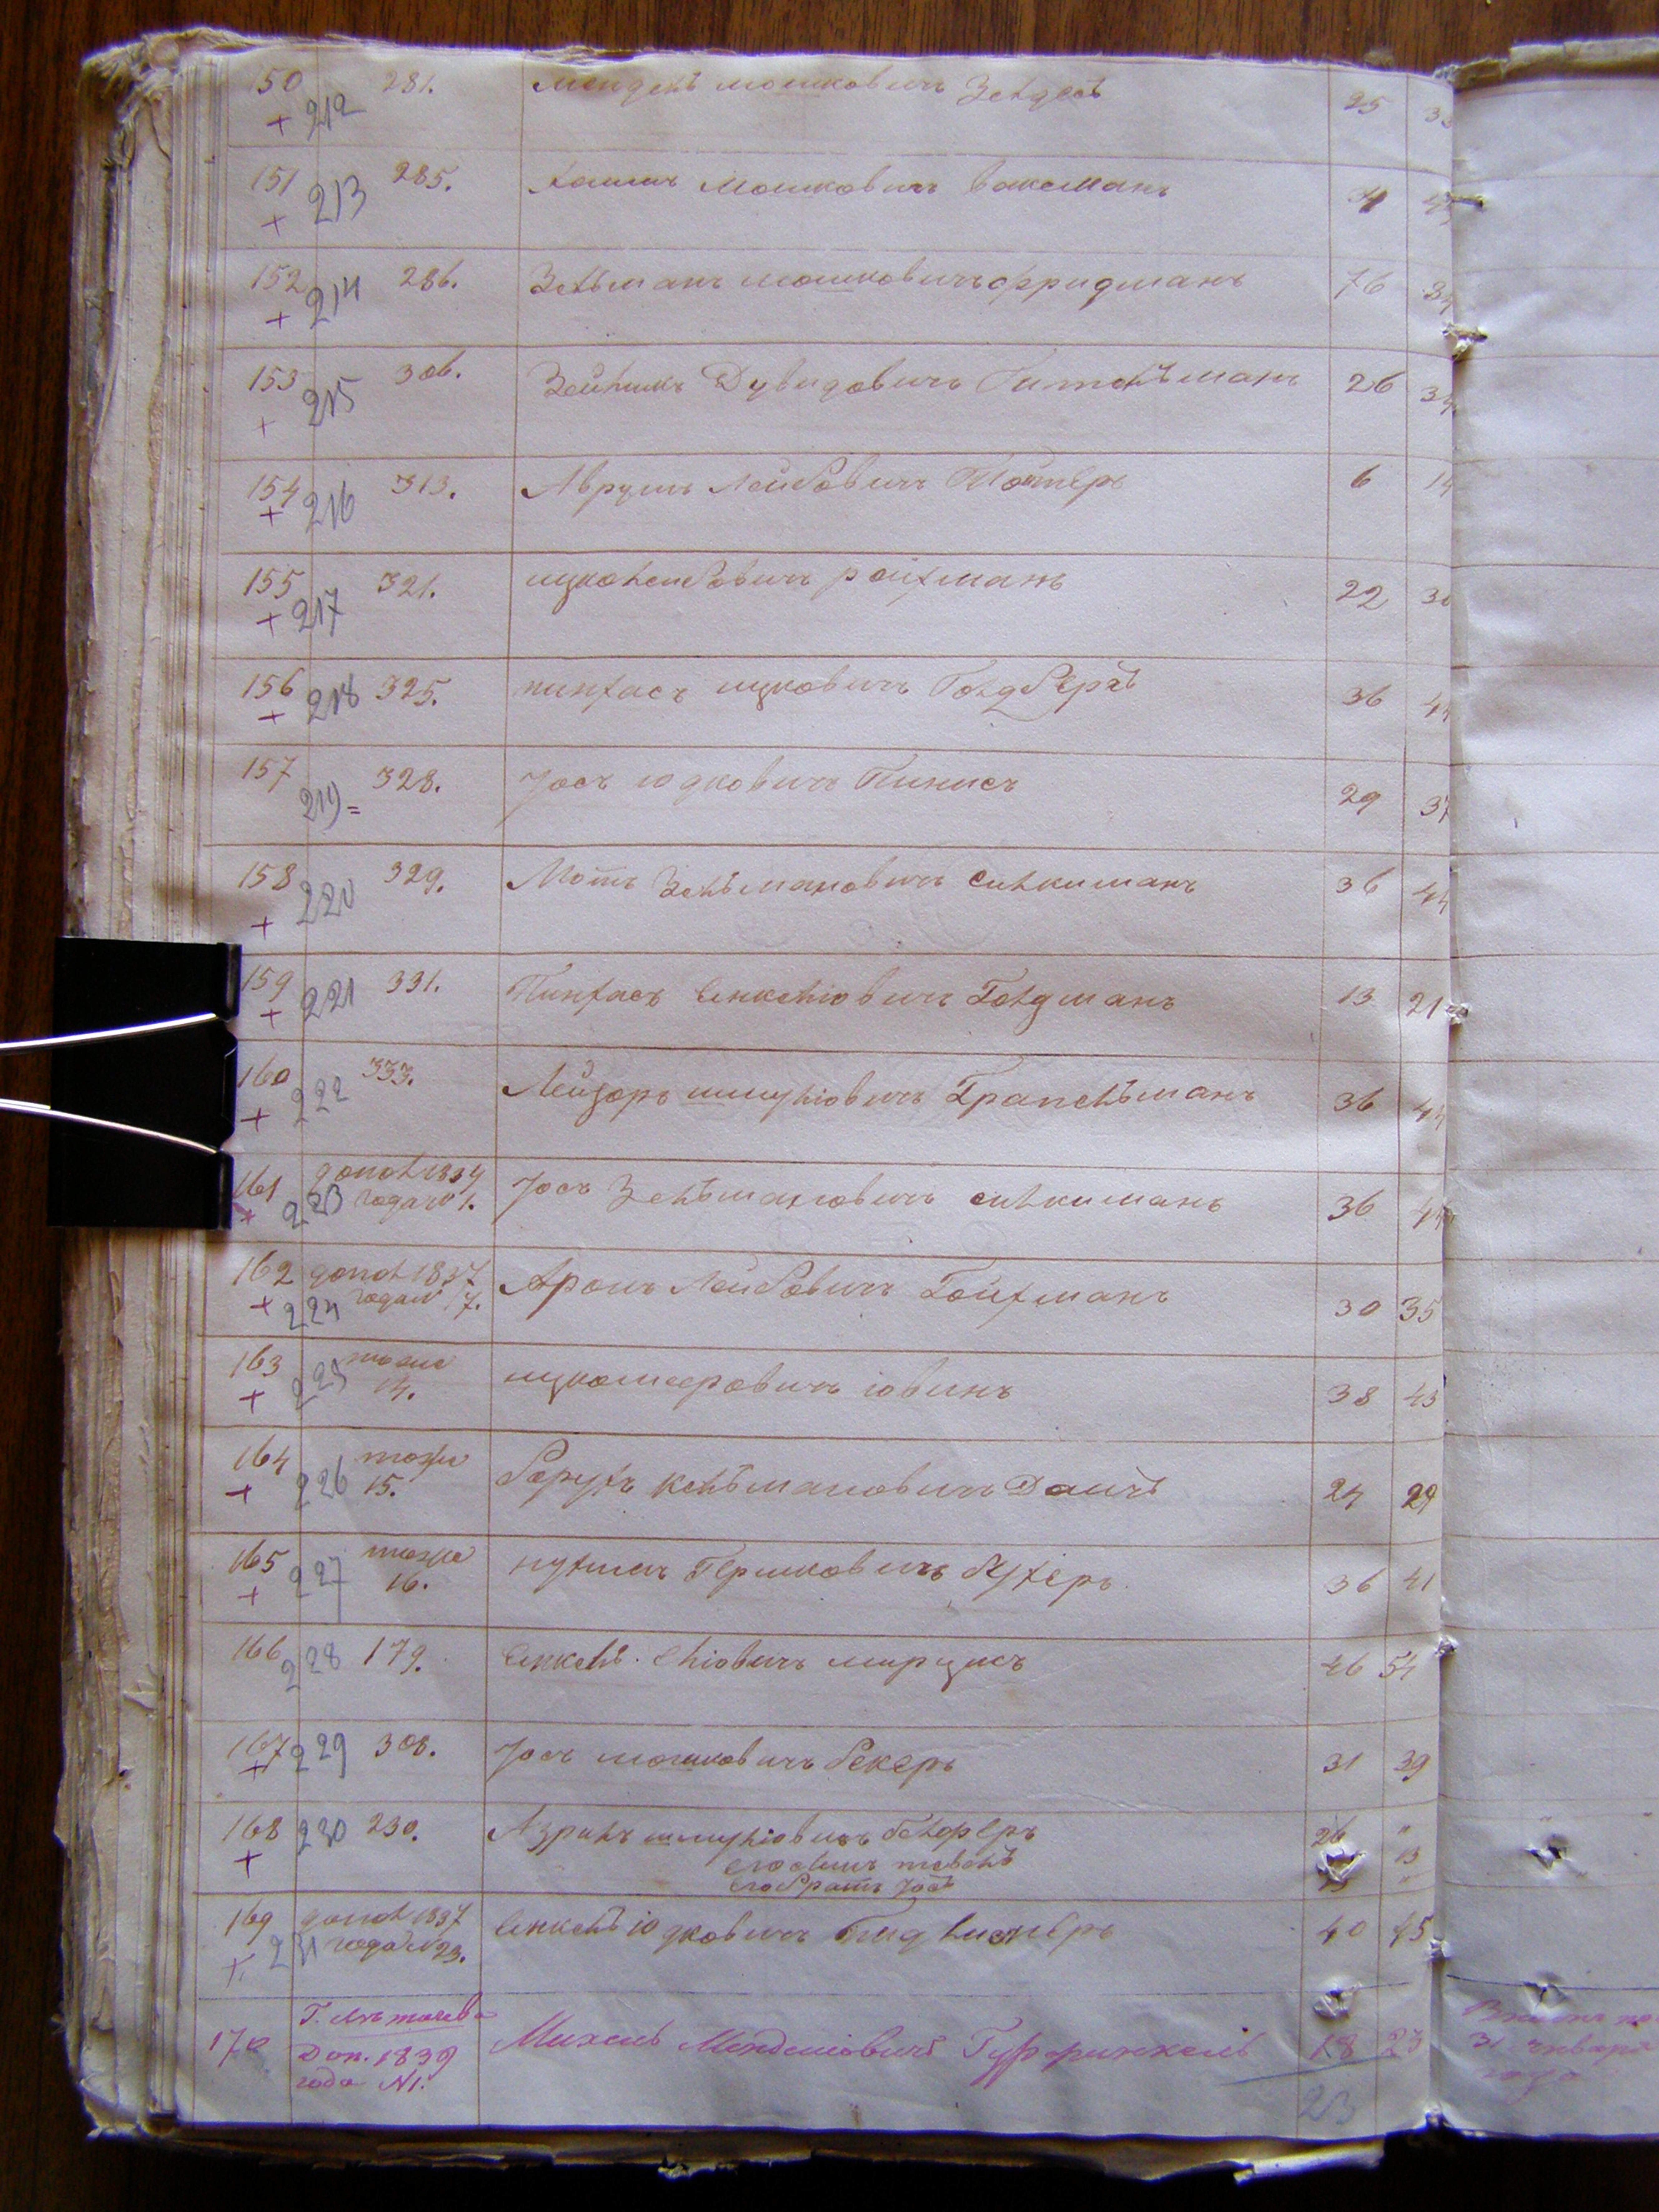 150 + 212 281. Мендель мошковичъ Зельдесъ 25
151 + 213 285. Хаимъ Мошковичъ Ваксманъ
152 + 214 286. Зельманъ мошковичъ Фридманъ 76
153 + 215 306. Зейликъ Дувидовичъ Гительманъ 26 34
154 + 216 313. Аврумъ Лейбовичъ 6 14
155 + 217 321. ицко Лейбовичъ ройхманъ 22 30
156 + 218 325. пинхасъ ицковичъ Голдбергъ 36 44
157 219 = 328. Іосъ юдковичъ Пинисъ 29 37
158 + 220 329. Мотъ Зельмановичъ силкиманъ 36 44
159 + 221 331. Пинхасъ Енкеліовичъ Голдманъ 13 21
160 + 222 333. Лейзоръ шмуліовичъ Грапельманъ 36 44
161 + 223 допол 1834
года № 1. Іосъ Зельмановичъ силкиманъ 36 44
162 + 224 допол 1837
года № 7. Аронъ Лейбовичъ Гойхманъ 30 35
163 + 225 тоже
14. ицко меровичъ іовинъ 38 43
164 + 226 тоже
15. Борухъ Кельмановичъ Даичъ 24 29
165 + 227 тоже
16. нухимъ Гершковичъ бухеръ 36 41
166 228 179. Енкель Еліовичъ мирцисъ 46 54
167 + 229 308. Іосъ мошковичъ бекеръ 31 39
168 + 230 230. Азрилъ шмуліовичъ белферъ 26 "
его сынъ тевель 13
его братъ Іосъ "
169 + 231 допол 1837
года № 23. Енкель юдковичъ 40 45
170 Доп. 1839
года № 1. Михель Менделіовичъ Гуфринкель 18 23
31 января
года
23